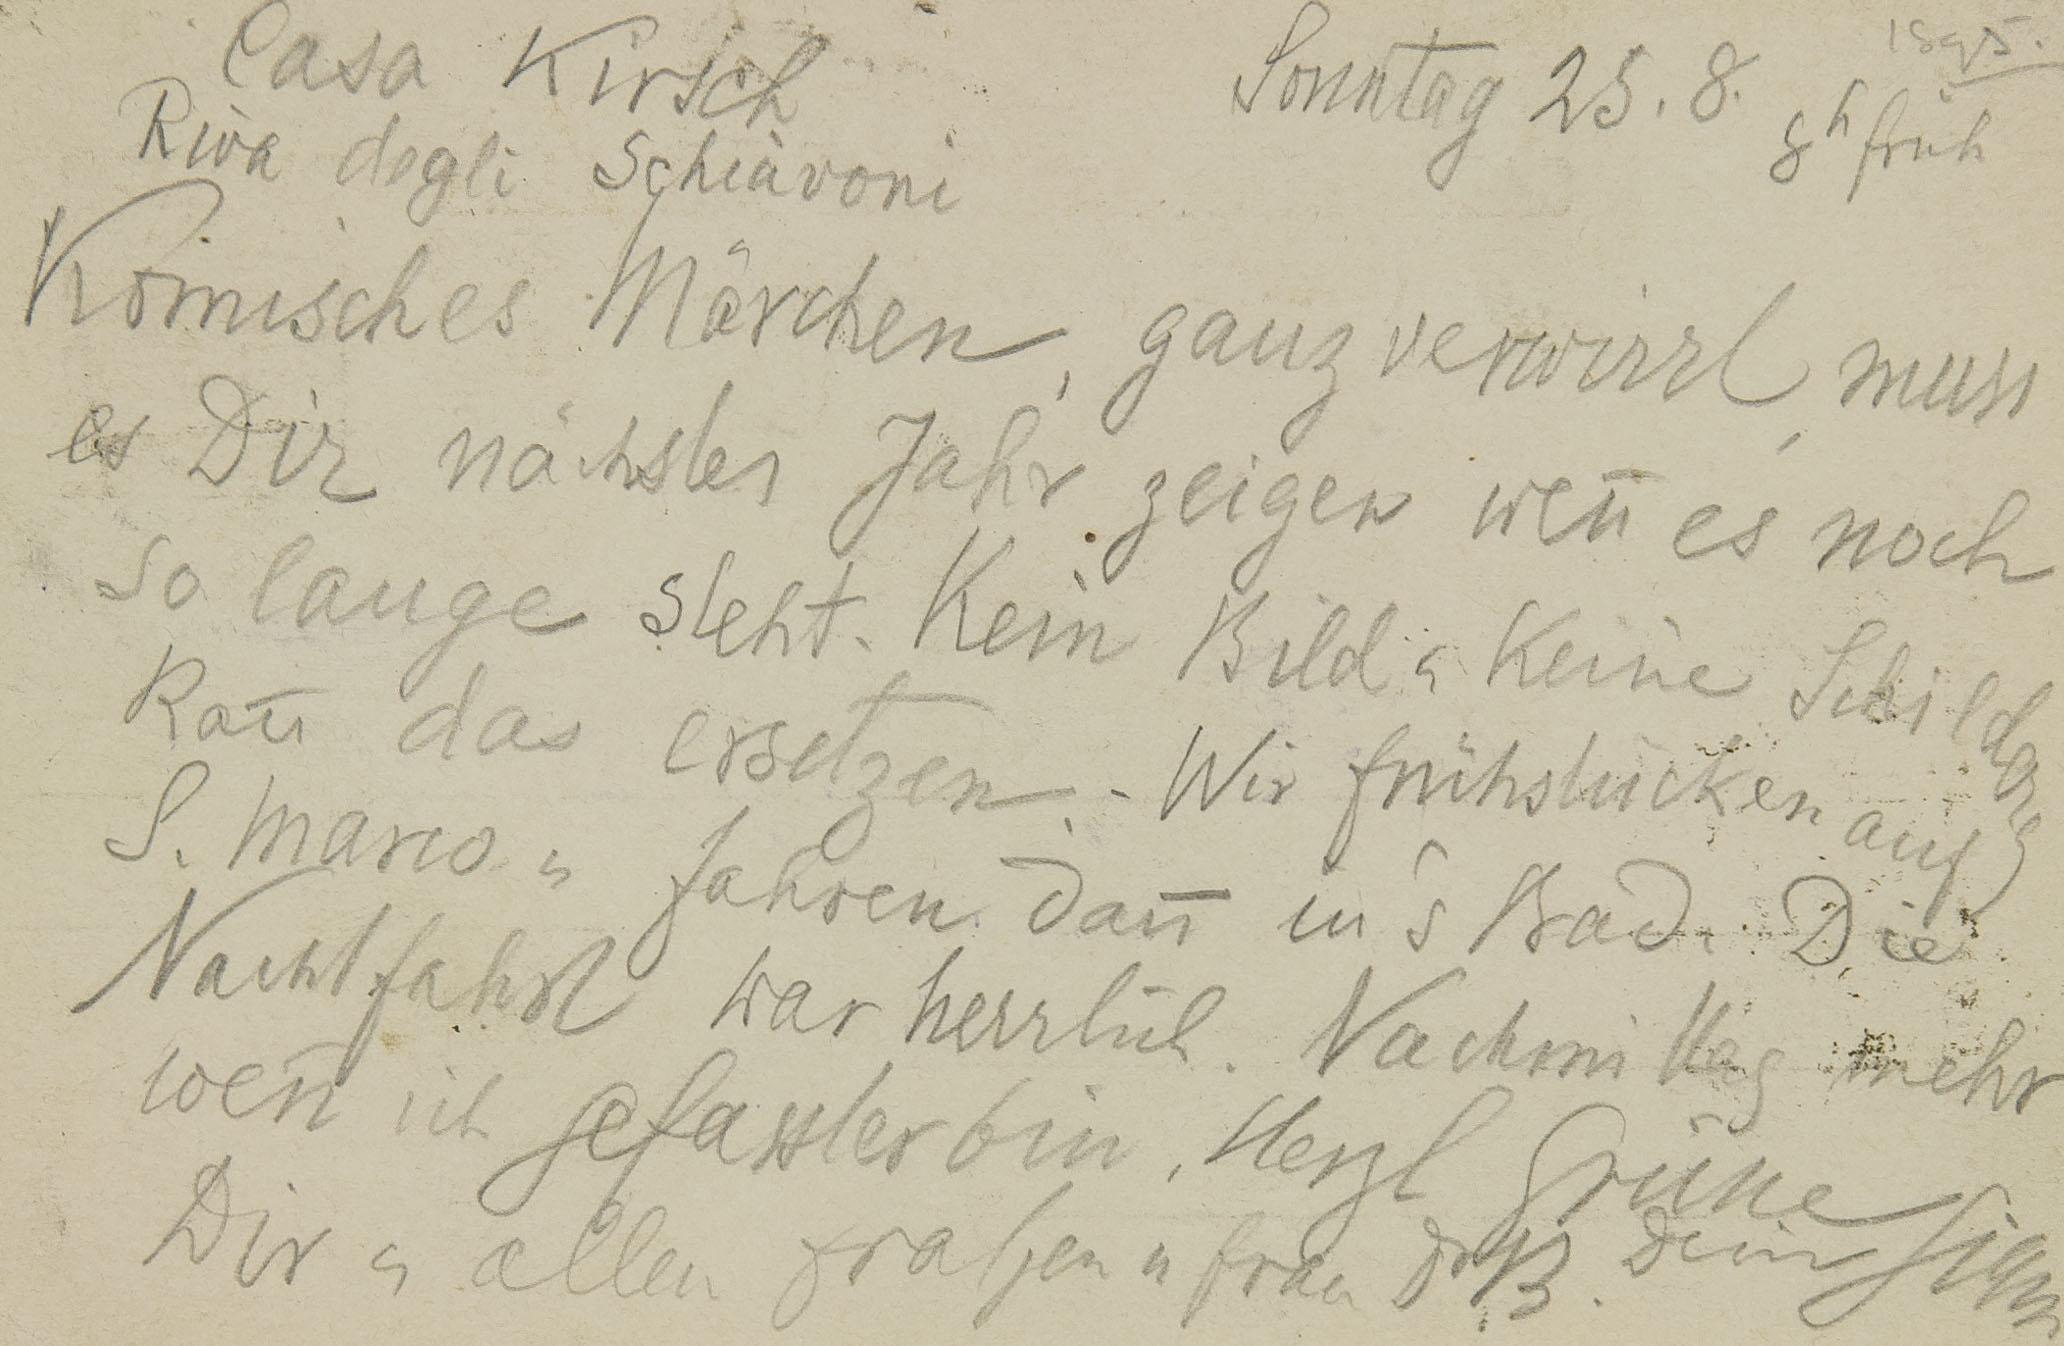 Casa Kirsch
Riva degli Schiavoni
Sonntag 25. 8. 1895.
8h früh
Komisches Märchen, ganz verwirrt, muss
es Dir nächstes Jahr zeigen wen̄ es noch
so lange steht. Kein Bild u keine Schilderg
kan̄ das ersetzen. - Wir frühstücken auf
S. Marco u fahren dan̄ in's Bad. Die
Nachtfahrt war herrlich. Nachmittag mehr
wen̄ ich gefasster bin, Herzl Grüße
Dir u allen u Frau Dr B. Dein Sigm